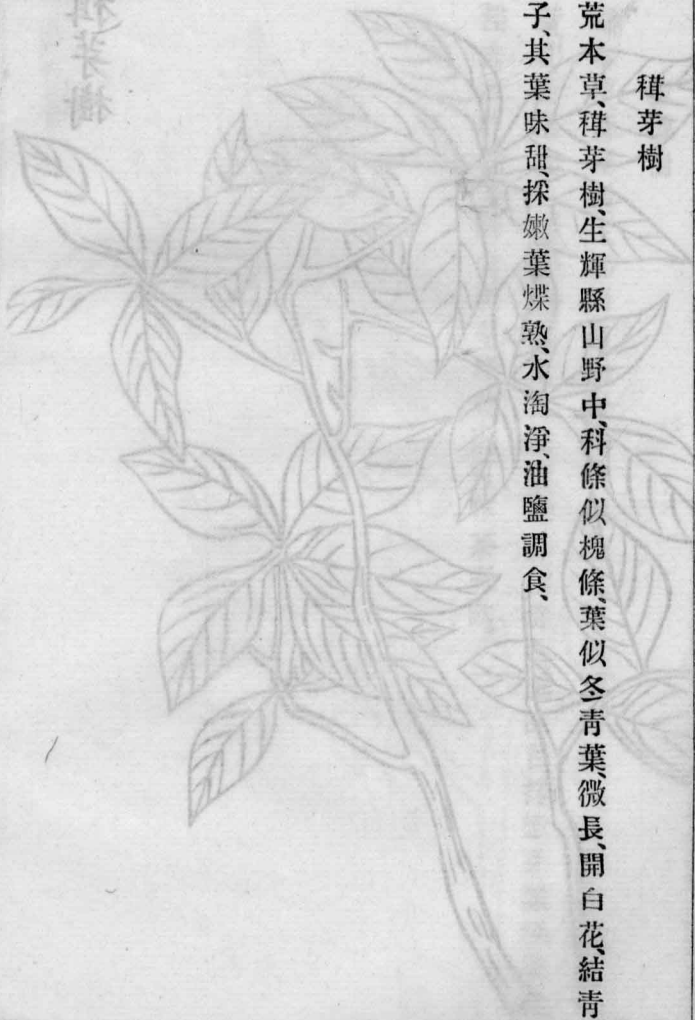 稕芽樹
荒本草、稕芽樹、生輝縣山野中、科條似槐條、葉似冬青葉、微長、開白花、結青
子、其葉味甜、採嫩葉煠熟、水淘淨、油鹽調食、